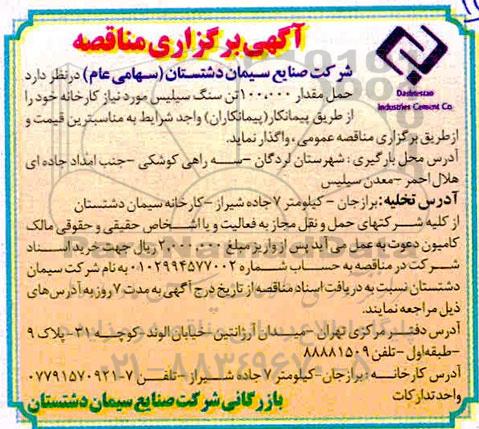 آگهی برگزاری مناقصه
Dashtestan
Industries Cement Co.
شرکت صنایع سیمان دشتستان (سهامی عام) درنظر دارد
حمل مقدار ۱۰۰،۰۰۰ تن سنگ سیلیس مورد نیاز کارخانه خود را
از طریق پیمانکار (پیمانکاران) واجد شرایط به مناسبترین قیمت و
از طریق برگزاری مناقصه عمومی، واگذار نماید.
آدرس محل بارگیری: شهرستان لردگان – سه راهی کوشکی – جنب امداد جاده ای
هلال احمر – معدن سیلیس
آدرس تخلیه: برازجان – کیلومتر ۷ جاده شیراز – کارخانه سیمان دشتستان
از کلیه شرکتهای حمل و نقل مجاز به فعالیت و یا اشخاص حقیقی و حقوقی مالک
کامیون دعوت به عمل می آید پس از واریز مبلغ ۲،۰۰۰،۰۰۰ ریال جهت خرید اسناد
شرکت در مناقصه به حساب شماره ۰۱۰۲۹۹۴۵۷۷۰۰۲ به نام شرکت سیمان
دشتستان نسبت به دریافت اسناد مناقصه از تاریخ درج آگهی به مدت ۷ روز به آدرس های
ذیل مراجعه نمایند.
آدرس دفتر مرکزی تهران – میدان آرژانتین – خیابان الوند – کوچه ۳۱ – پلاک ۹
– طبقه اول – تلفن ۸۸۸۸۱۵۰۹
آدرس کارخانه: برازجان – کیلومتر ۷ جاده شیراز – تلفن ۷-۰۷۷۹۱۵۷۰۹۲۱
واحد تدارکات
بازرگانی شرکت صنایع سیمان دشتستان
۰۲۱-۸۸۳۴۹۶۷۰-۵